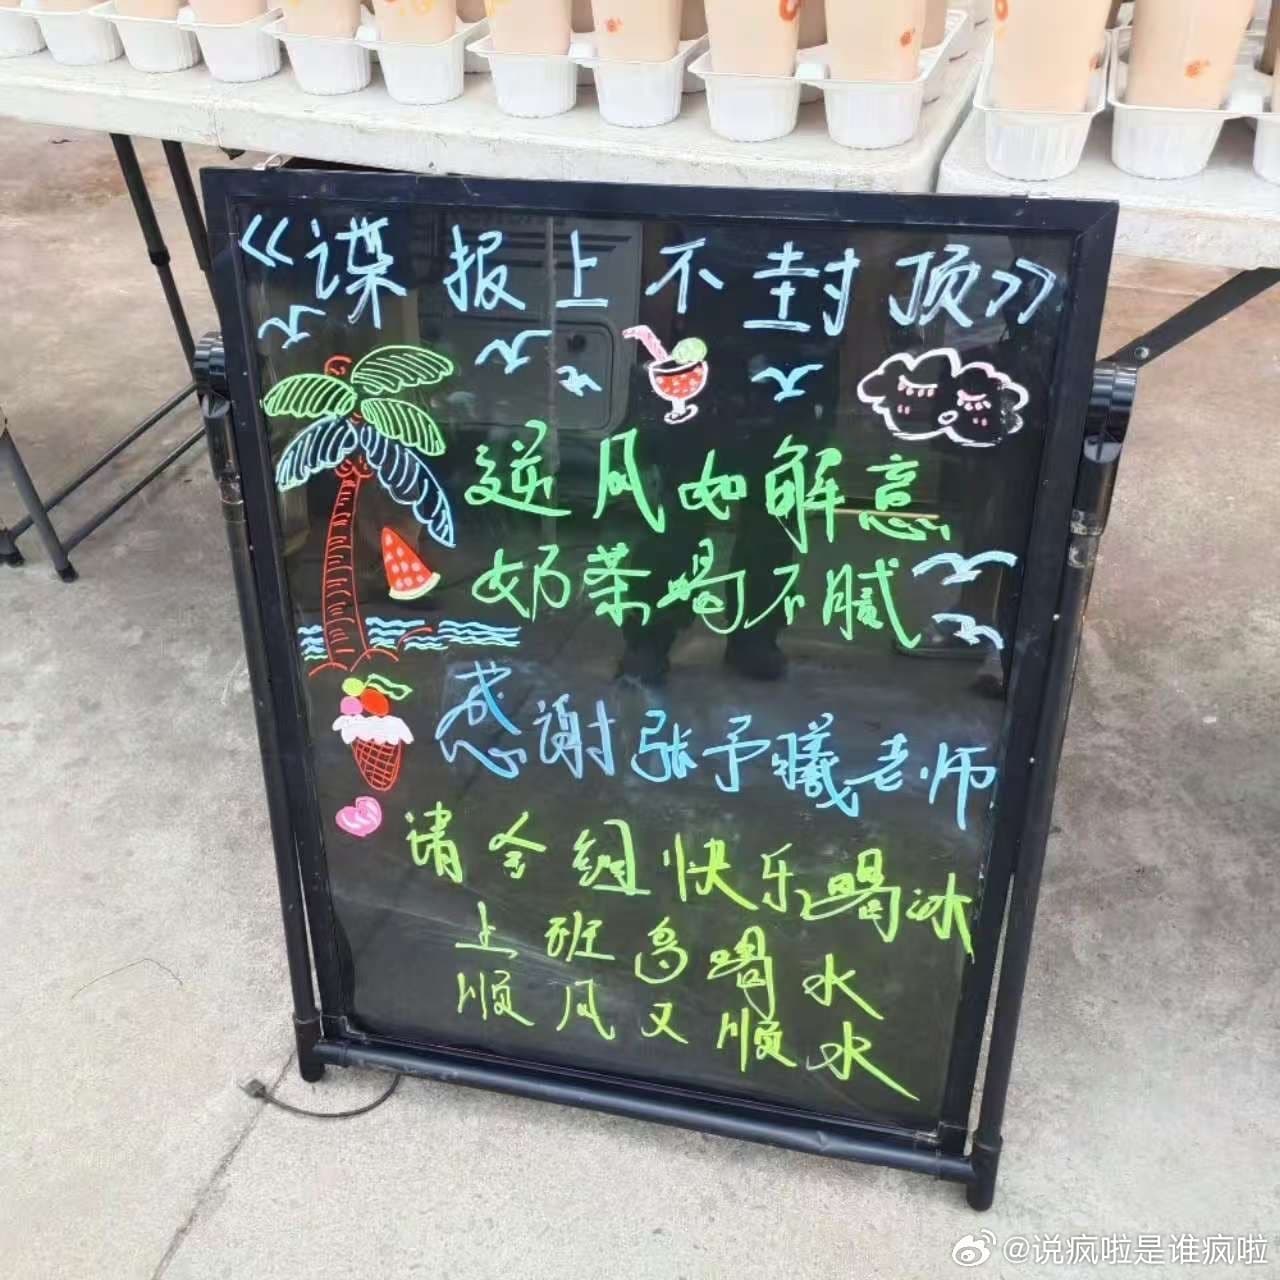 《谍报上不封顶》
逆风如解意
奶茶喝不腻
感谢张予曦老师
请全组快乐喝冰
上班多喝水
顺风又顺水
@说疯啦是谁疯啦